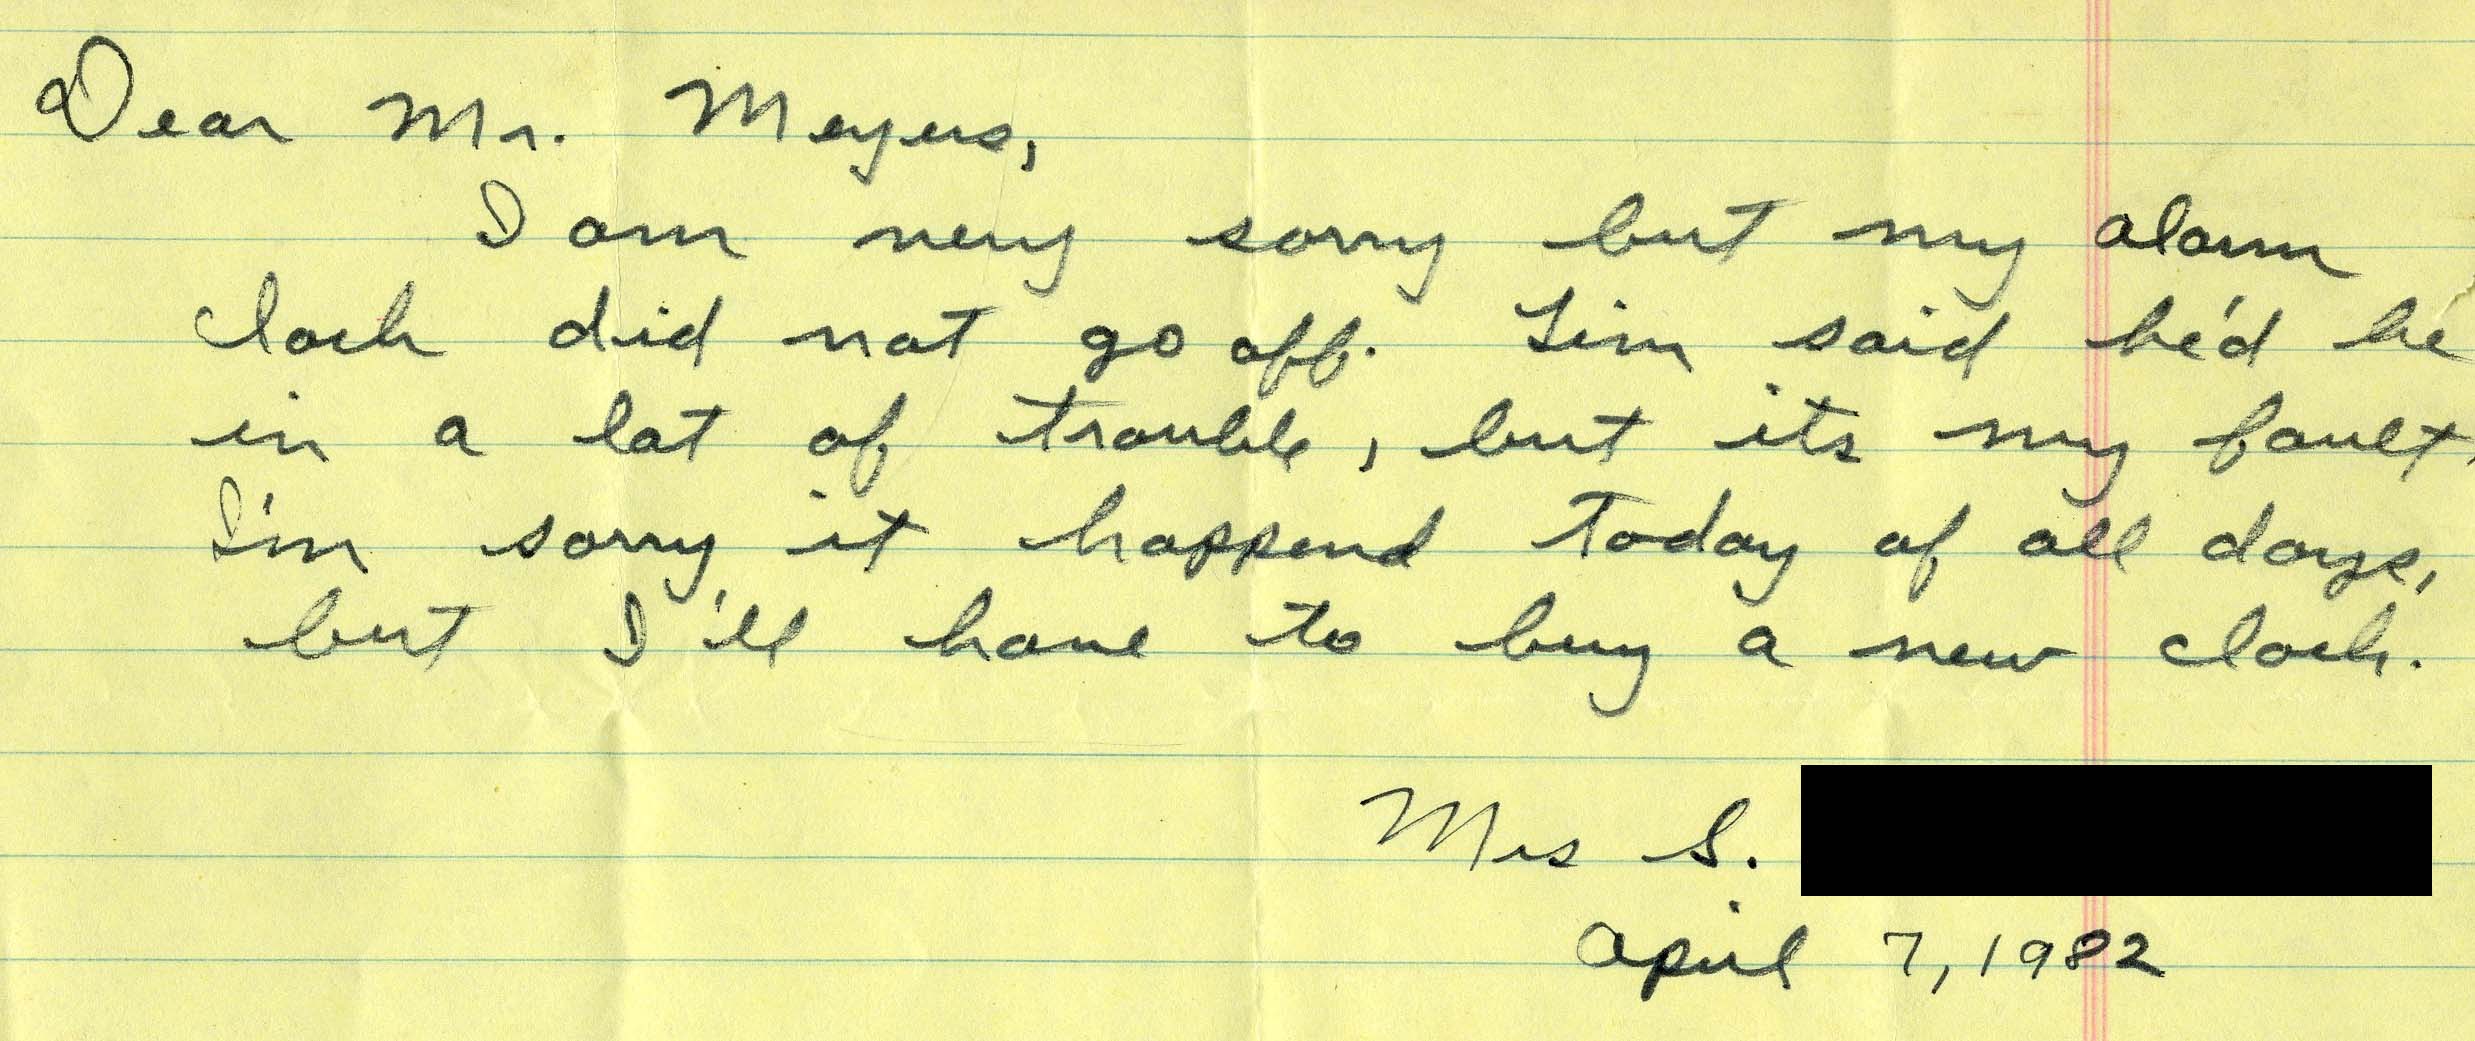 Dear Mr. Meyers,
I am very sorry but my alarm
clock did not go off. Tim said he'd be
in a lot of trouble, but its my fault.
I'm sorry it happend today of all days,
but I'll have to buy a new clock.
Mrs S.
April 7, 1982